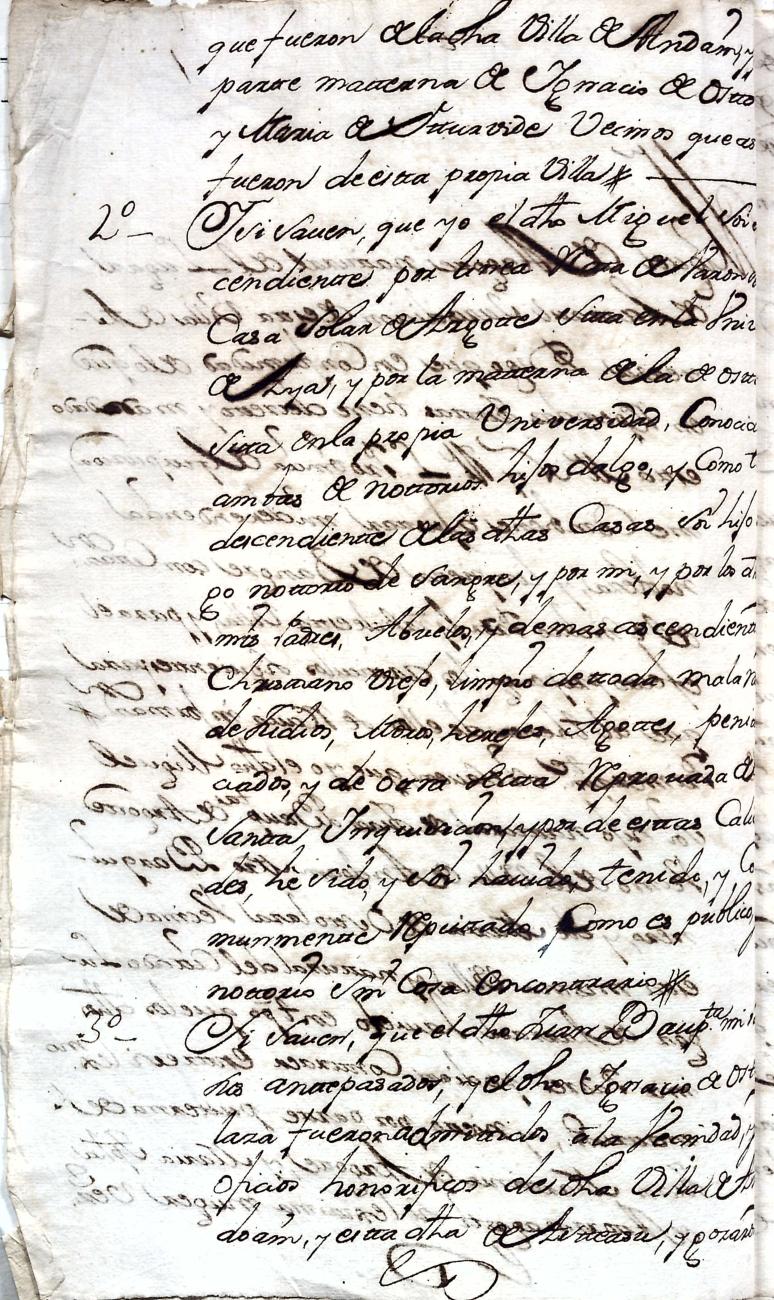 que fueron de la dha Villa de Andoàin, y
parte materna de Ygnacio de Osto
y Maria de Yturvide Vecinos que as
fueron de esta propia Villa
2º Ysi saven, que yo el dho Miguel soi
cendiente por linea de Varon
Casa Solar de Argote sita en la Vni
de Aya, y por la materna de la de ost
sita en la propia Universidad, Conocid
ambas de nottorios hijos dalgo, y Como t
descendiente de las dhas Casas soi hijo
go nottorio de sangre, y por mi, y por los d
mis Padres, Abuelos, y demas ascendient
Christiano Viejo, limpio de toda mala r
de Judios, Moros, herejes, Agotes, peni
ciados, y de otra secta Reprovada
santa Inquisicion, y por de estas Cali
des, hè sido, y soi havido, tenido, y Co
munmente Reputado Como es publico, y
nottorio sin Cosa en contrario
3º Si saven, que el dho Juan Baupta mi
antepasados, y el dho Ygnacio de Ost
laza fueron admitidos à la Vecindad, y
oficios honorificos de dha Villa de An
doàin, y esta dha de y gozàn